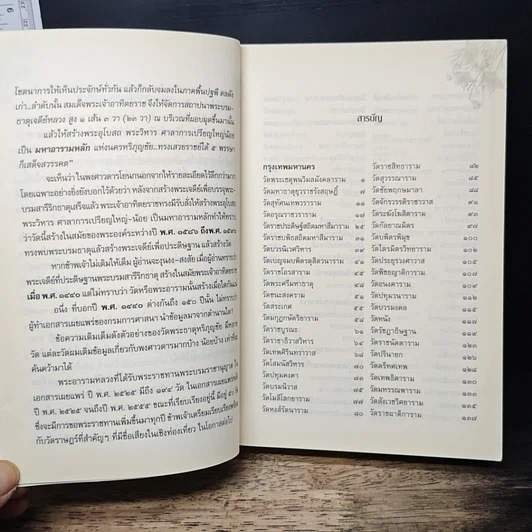 โชตนาการให้เห็นประจักษ์ทั่วกัน แล้วก็กลับจมลงในภาคพื้นปฐพี ดลดัง
เก่า..ลำดับนั้น สมเด็จพระเจ้าอาทิตยราช จึงให้จัดการสถาปนาพระบรม-
ธาตุเจดีย์หลวง สูง ๑ เส้น ๓ วา (๒๓ วา) ณ บริเวณที่ผอบผุดขึ้นมานั้น
แล้วให้สร้างพระอุโบสถ พระวิหาร ศาลาการเปรียญใหญ่น้อย
เป็น มหาอารามหลัก แห่งนครหริภุญชัย..ทรงเสวยราชย์ได้ ๕ พรรษา
ก็เสด็จสวรรคต"
จะเห็นว่า ในพงศาวดารโยนกนอกจากให้รายละเอียดไว้ลึกกว่ามาก
โดยเฉพาะอย่างยิ่งยังบอกไว้ด้วยว่า หลังจากสร้างพระเจดีย์เพื่อบรรจุพระ-
บรมสารีริกธาตุเสร็จแล้ว พระเจ้าอาทิตยราชทรงมีรับสั่งให้สร้างพระอุโบสถ
พระวิหาร ศาลาการเปรียญใหญ่-น้อย เป็นมหาอารามหลักที่ทำให้ทราบ
ว่าวัดนี้สร้างในสมัยของพระองค์ระหว่างปี พ.ศ. ๑๕๘๖ ถึงพ.ศ.
ทรงพบพระบรมธาตุแล้วสร้างพระเจดีย์เพื่อประดิษฐาน แล้วสร้างวัด
หากข้าพเจ้าไม่เติมให้เต็ม ผู้อ่านจะงุนงง-สงสัย เมื่อผู้อ่านทราบว่า
พระเจดีย์ที่ประดิษฐานพระบรมสารีริกธาตุ สร้างในสมัยพระเจ้าอาทิตยราช
เมื่อ พ.ศ. ๑๔๔๐ แต่ไม่ทราบว่า วัดหรือพระอารามนั้นสร้างเมื่อใดกันแน่
อนึ่ง ที่บอกปี พ.ศ. ๑๔๔๐ ต่างกันถึง ๑๕๐ ปีนั้น ไม่ทราบว่า
ผู้ทำเอกสารเผยแพร่ของกรมการศาสนา นำข้อมูลมาจากตำนานใด?
ข้อความเติมเต็มดังตัวอย่างของวัดพระธาตุหริภุญชัย มีหลาย
วัด แต่ละวัดผมเติมข้อมูลเกี่ยวกับพงศาวดารมากบ้าง น้อยบ้าง เท่าที่จะ
ค้นคว้ามาได้
พระอารามหลวงที่ได้รับพระราชทานพระบรมราชานุญาต ใน
ปี พ.ศ. ๒๕๒๕ มีถึง ๑๙๔ วัด ในเอกสารเผยแพร่
ปี พ.ศ. ๒๕๒๕ จนถึงปี พ.ศ. ๒๕๕๕ ขณะที่เรียบเรียงอยู่นี้ มีอยู่ ๓๐ วัด
ซึ่งจะมีการขอพระราชทานเพิ่มขึ้นมาทุกปี ข้าพเจ้าเตรียมเรียบเรียงพร้อม
กับวัดราษฎร์ที่สำคัญๆ ที่มีชื่อเสียงในเชิงท่องเที่ยว ในโอกาสต่อไป
สารบัญ
กรุงเทพมหานคร
วัดพระเชตุพนวิมลมังคลาราม ๑
วัดมหาธาตุยุวราชรังสฤษฎิ์ ๗
วัดสุทัศนเทพวราราม ๑๑
วัดอรุณราชวราราม ๑๘
วัดราชประดิษฐ์สถิตมหาสีมาราม ๒๕
วัดราชบพิธสถิตมหาสีมาราม ๒๘
วัดบวรนิเวศวิหาร ๓๑
วัดเบญจมบพิตรดุสิตวนาราม ๓๕
วัดราชโอรสาราม ๓๘
วัดพระศรีมหาธาตุ ๔๑
วัดชนะสงคราม ๔๔
วัดสระเกศ ๔๗
วัดมกุฏกษัตริยาราม ๕๑
วัดราชบูรณะ ๕๔
วัดราชาธิวาสวิหาร ๕๗
วัดเทพศิรินทราวาส ๖๑
วัดโสมนัสวิหาร ๖๕
วัดปทุมคงคา ๖๙
วัดบรมนิวาส ๗๓
วัดโมลีโลกยาราม ๗๖
วัดหงส์รัตนาราม ๘๐
วัดราชสิทธาราม ๘๒
วัดสุวรรณาราม ๘๕
วัดชัยพฤกษมาลา ๘๘
วัดจักรวรรดิราชาวาส ๙๑
วัดระฆังโฆสิตาราม ๙๔
วัดกัลยาณมิตร ๙๗
วัดบพิตรพิมุข ๑๐๑
วัดไตรมิตรวิทยาราม ๑๐๓
วัดประยุรวงศาวาส
วัดพิชยญาติการาม
วัดอนงคาราม
วัดปทุมวนาราม
วัดบวรมงคล
วัดหนัง
วัดรัชฎาธิษฐาน
วัดราชนัดดาราม
วัดปรินายก
วัดตรีทศเทพ
วัดเทพธิดาราม
วัดมหรรณพาราม
วัดสังเวชวิศยาราม ๑๓๕
วัดราชผาติการาม ๑๓๘